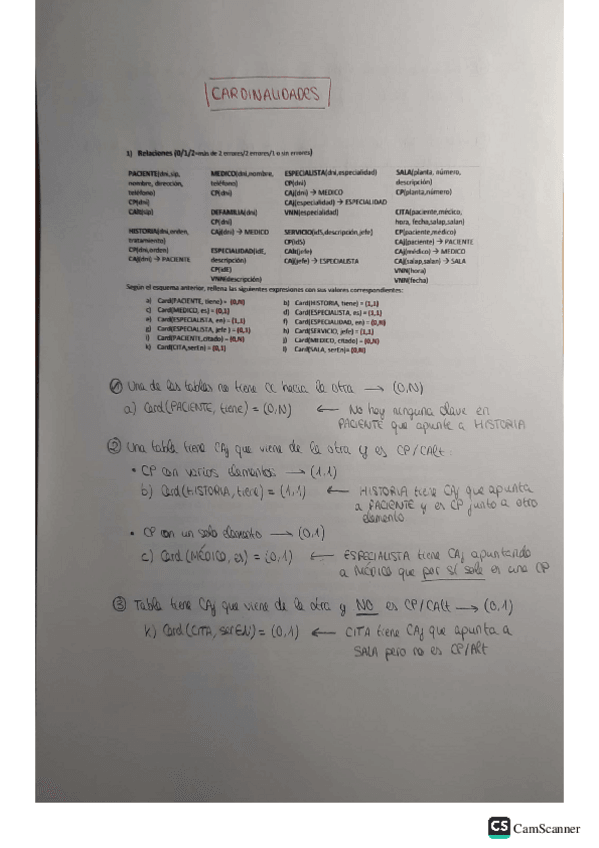 CARDINALIDADES
1) Relaciones (0/1/2=más de 2 errores/2 errores/1 o sin errores)
PACIENTE(dni,sip,
nombre, dirección,
teléfono)
CP(dni)
CAlt(sip)
HISTORIA(dni,orden,
tratamiento)
CP(dni,orden)
CAj(dni) → PACIENTE
MEDICO(dni,nombre,
teléfono)
CP(dni)
DEFAMILIA(dni)
CP(dni)
CAj(dni) → MEDICO
ESPECIALIDAD(idE,
descripción)
CP(idE)
VNN(descripción)
ESPECIALISTA(dni,especialidad)
CP(dni)
CAj(dni) → MEDICO
CAj(especialidad) → ESPECIALIDAD
VNN(especialidad)
SERVICIO(idS,descripción,jefe)
CP(idS)
CAlt(jefe)
CAj(jefe) → ESPECIALISTA
SALA(planta, número,
descripción)
CP(planta,número)
CITA(paciente,médico,
hora, fecha,salap,salan)
CP(paciente,medico)
CAj(paciente) → PACIENTE
CAj(médico) → MEDICO
CAj(salap,salan) → SALA
VNN(hora)
VNN(fecha)
Según el esquema anterior, rellena las siguientes expresiones con sus valores correspondientes:
a) Card(PACIENTE, tiene) = (0,N)
b) Card(HISTORIA, tiene) = (1,1)
c) Card(MEDICO, es) = (0,1)
d) Card(ESPECIALISTA, es) = (1,1)
e) Card(ESPECIALISTA, en) = (1,1)
f) Card(ESPECIALIDAD, en) = (0,N)
g) Card(ESPECIALISTA, jefe ) = (0,1)
h) Card(SERVICIO, jefe) = (1,1)
i) Card(PACIENTE,citado) = (0,N)
j) Card(MEDICO, citado) = (0,N)
k) Card(CITA,serEn) = (0,1)
l) Card(SALA, serEn)= (0,N)
Una de las tablas no tiene CX hacia la otra → (0,N)
a) Card(PACIENTE, tiene) = (0,N) ← No hay ninguna clave en
PACIENTE que apunte a HISTORIA
② Una tabla tiene CAj que viene de la otra y es CP/CAlt:
• CP con varios elementos → (1,1)
b) Card(HISTORIA, tiene) = (1,1) ← HISTORIA tiene CAj que apunta
a PACIENTE y es CP junto a otro
elemento
• CP con un solo elemento → (0,1)
c) Card(MÉDICO, es) = (0,1) ← ESPECIALISTA tiene CAj apuntando
a MÉDICO que por sí sola es una CP
③ Tabla tiene CAj que viene de la otra y NO es CP/CAlt → (0,1)
k) Card(CITA, serEN) = (0,1) ← CITA tiene CAj que apunta a
SALA pero no es CP/Alt
CS CamScanner